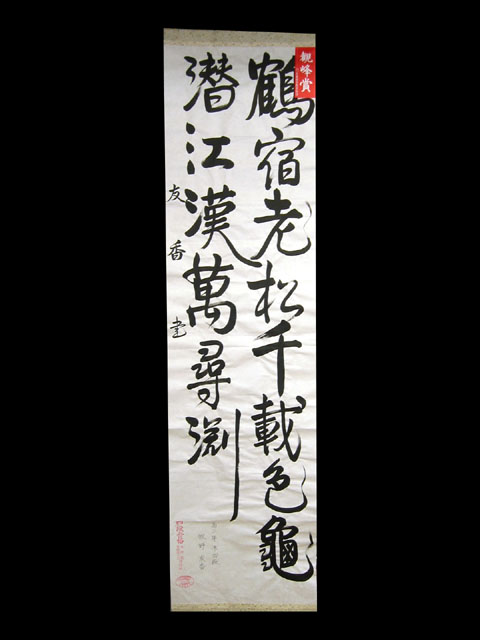 鶴宿老松千載色龜
潜江漢萬尋淵
友香書
観峰賞